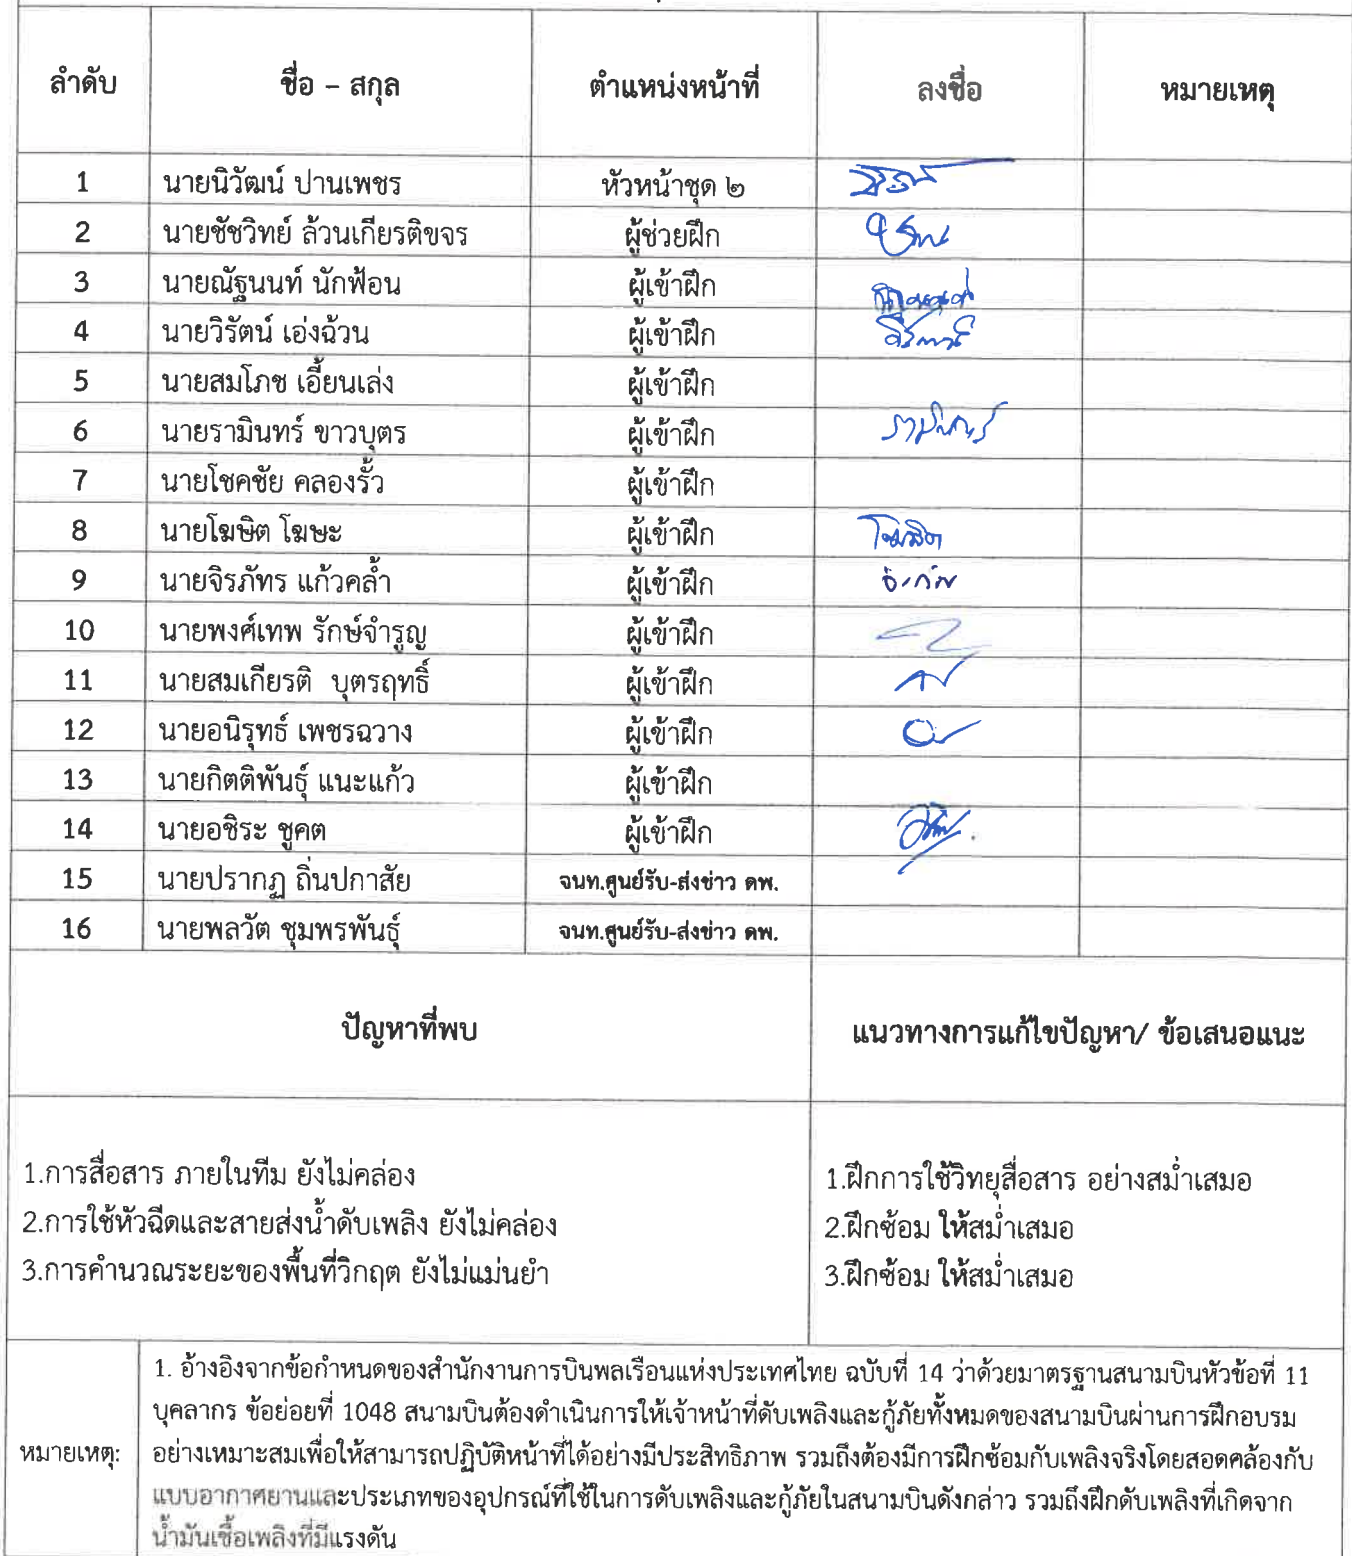 ลำดับ ชื่อ – สกุล ตำแหน่งหน้าที่ ลงชื่อ หมายเหตุ
1 นายนิวัฒน์ ปานเพชร หัวหน้าชุด ๒
2 นายชัชวิทย์ ล้วนเกียรติขจร ผู้ช่วยฝึก
3 นายณัฐนนท์ นักฟ้อน ผู้เข้าฝึก
4 นายวิรัตน์ เอ่งฉ้วน ผู้เข้าฝึก
5 นายสมโภช เอี้ยนเล่ง ผู้เข้าฝึก
6 นายรามินทร์ ขาวบุตร ผู้เข้าฝึก รามินทร์
7 นายโชคชัย คลองรั้ว ผู้เข้าฝึก
8 นายโฆษิต โฆษะ ผู้เข้าฝึก โฆษิต
9 นายจิรภัทร แก้วคล้ำ ผู้เข้าฝึก
10 นายพงศ์เทพ รักษ์จำรูญ ผู้เข้าฝึก
11 นายสมเกียรติ บุตรฤทธิ์ ผู้เข้าฝึก
12 นายอนิรุทธ์ เพชรฉวาง ผู้เข้าฝึก
13 นายกิตติพันธุ์ แนะแก้ว ผู้เข้าฝึก
14 นายอชิระ ชูคต ผู้เข้าฝึก
15 นายปรากฏ ถิ่นปกาสัย จนท.ศูนย์รับ-ส่งข่าว ดพ.
16 นายพลวัต ชุมพรพันธุ์ จนท.ศูนย์รับ-ส่งข่าว ดพ.
ปัญหาที่พบ แนวทางการแก้ไขปัญหา/ ข้อเสนอแนะ
1.การสื่อสาร ภายในทีม ยังไม่คล่อง
2.การใช้หัวฉีดและสายส่งน้ำดับเพลิง ยังไม่คล่อง
3.การคำนวณระยะของพื้นที่วิกฤต ยังไม่แม่นยำ
1.ฝึกการใช้วิทยุสื่อสาร อย่างสม่ำเสมอ
2.ฝึกซ้อม ให้สม่ำเสมอ
3.ฝึกซ้อม ให้สม่ำเสมอ
หมายเหตุ:
1. อ้างอิงจากข้อกำหนดของสำนักงานการบินพลเรือนแห่งประเทศไทย ฉบับที่ 14 ว่าด้วยมาตรฐานสนามบินหัวข้อที่ 11
บุคลากร ข้อย่อยที่ 1048 สนามบินต้องดำเนินการให้เจ้าหน้าที่ดับเพลิงและกู้ภัยทั้งหมดของสนามบินผ่านการฝึกอบรม
อย่างเหมาะสมเพื่อให้สามารถปฏิบัติหน้าที่ได้อย่างมีประสิทธิภาพ รวมถึงต้องมีการฝึกซ้อมกับเพลิงจริงโดยสอดคล้องกับ
แบบอากาศยานและประเภทของอุปกรณ์ที่ใช้ในการดับเพลิงและกู้ภัยในสนามบินดังกล่าว รวมถึงฝึกดับเพลิงที่เกิดจาก
น้ำมันเชื้อเพลิงที่มีแรงดัน